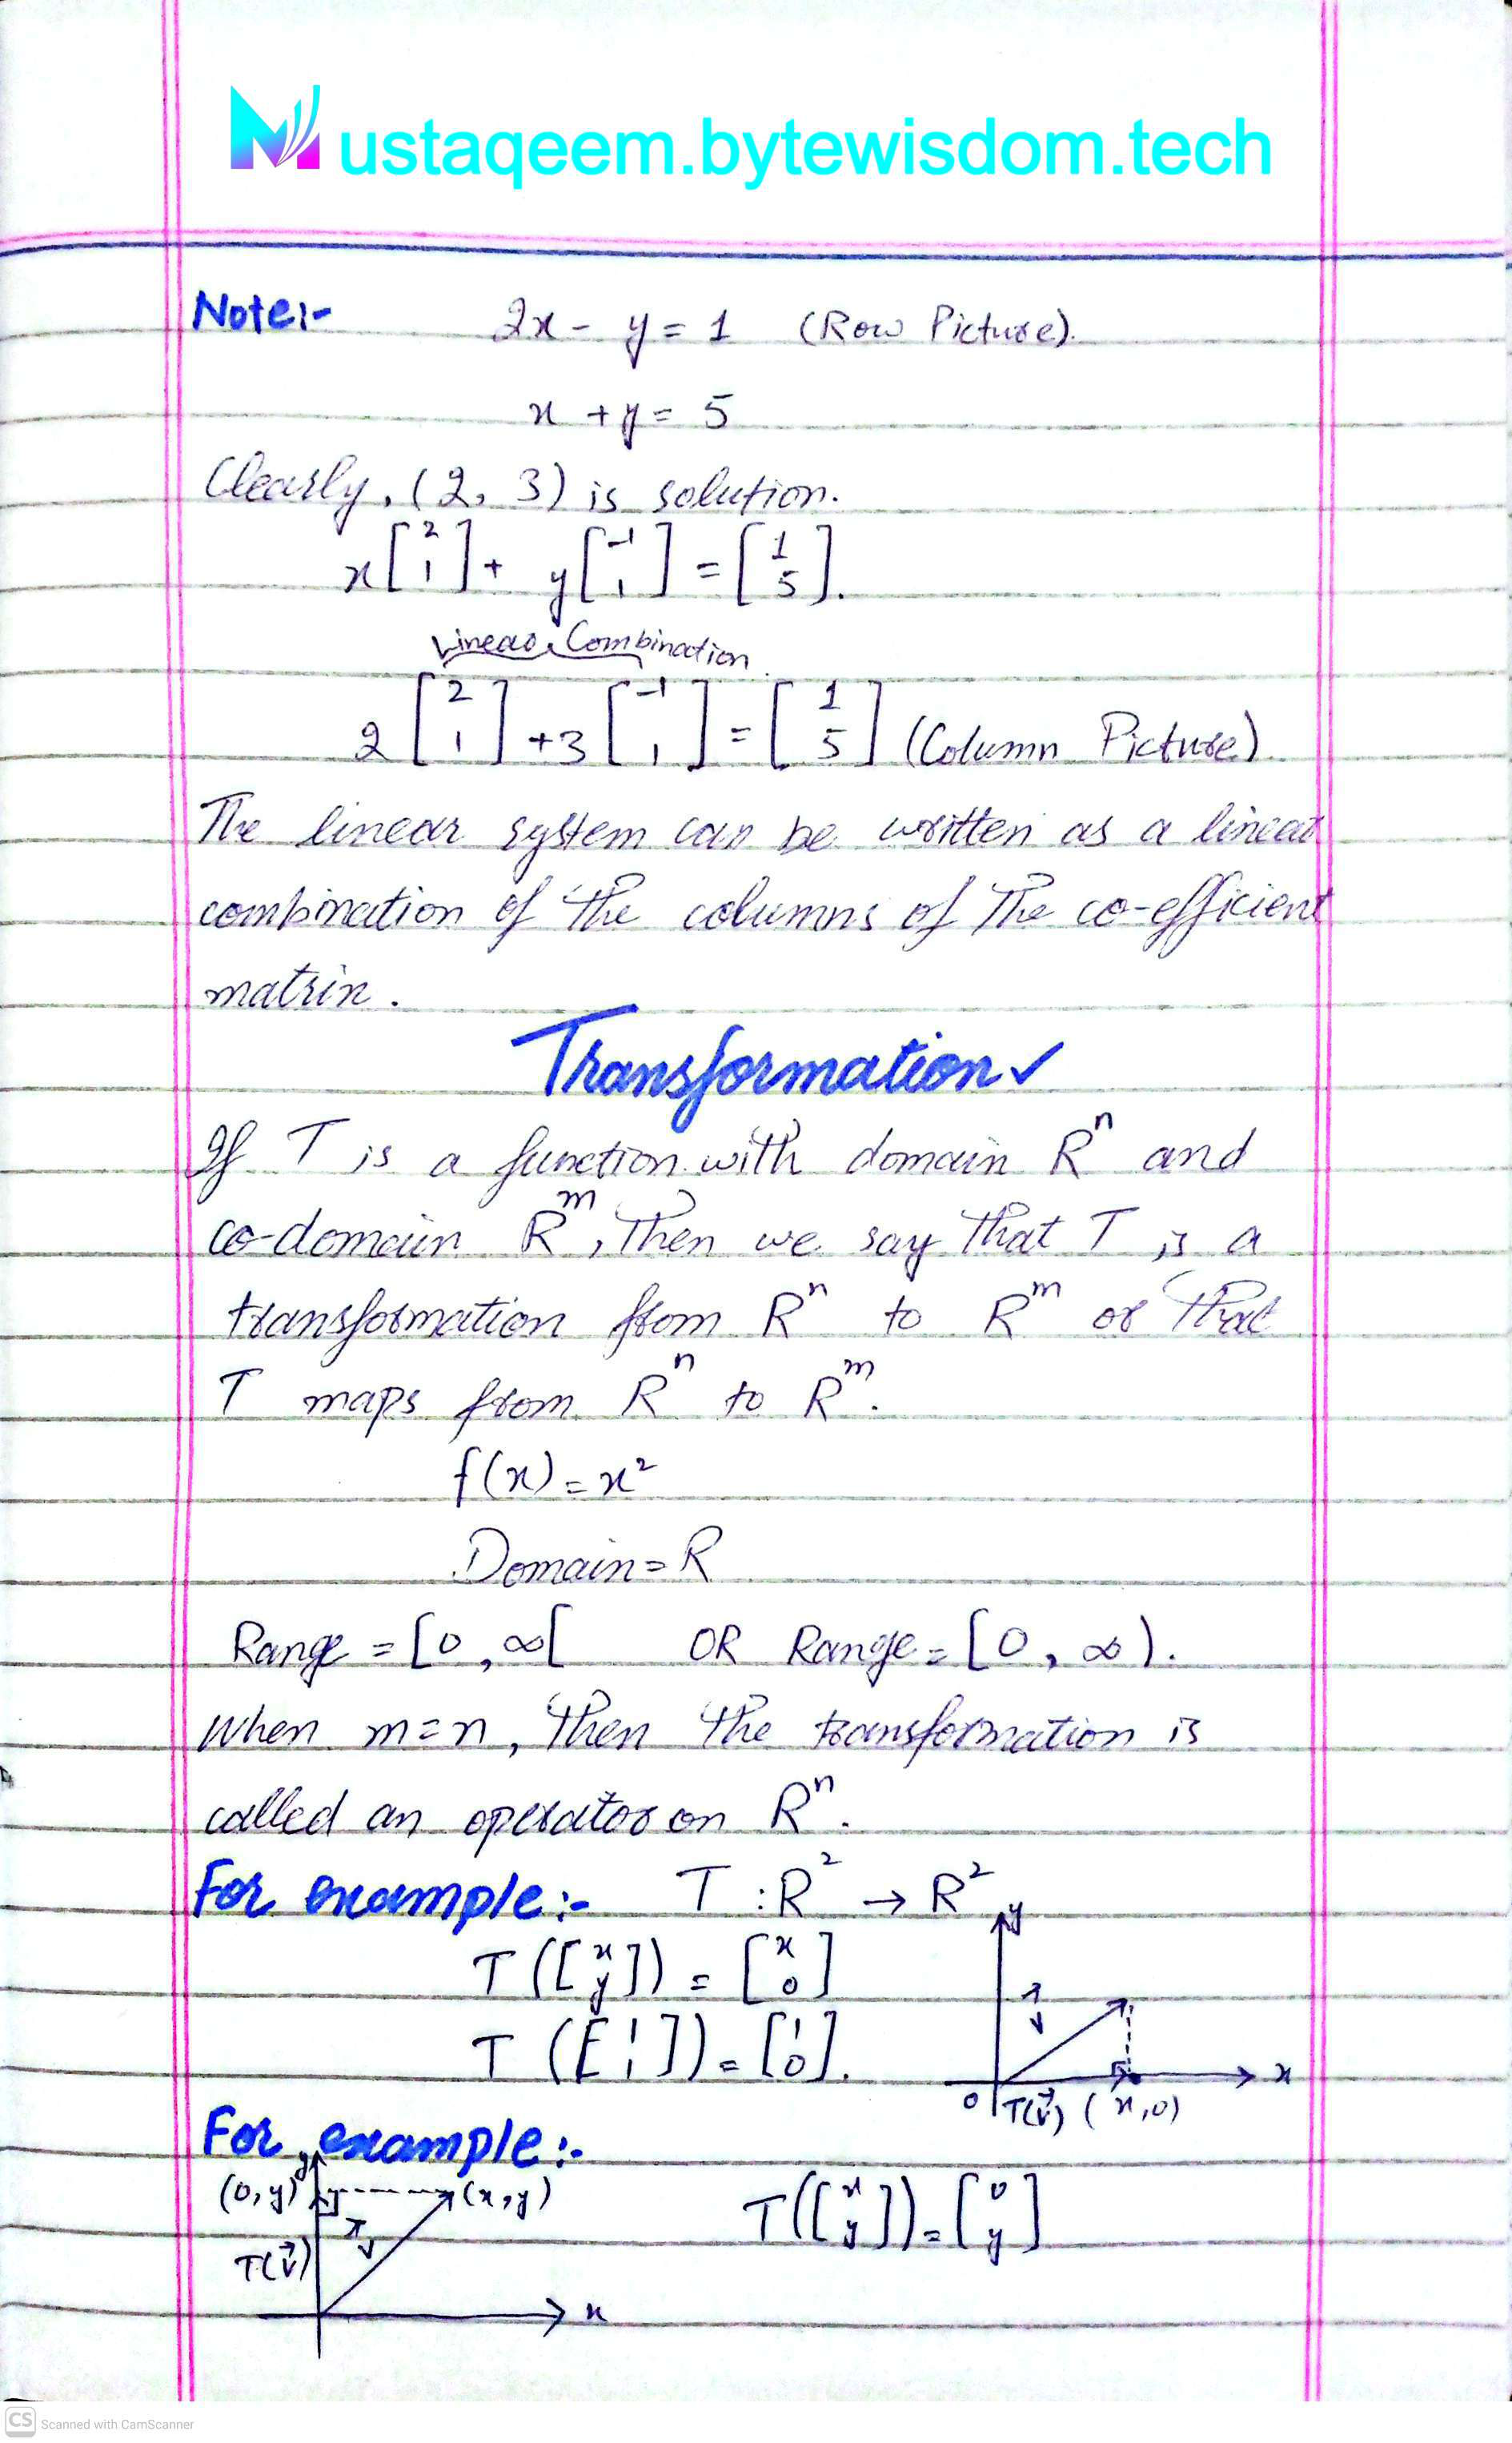 Mustaqeem.bytewisdom.tech
Note:- 2x - y = 1 (Row Picture).
x + y = 5
Clearly, (2, 3) is solution.
x[2 1] + y[-1 1] = [1 5].
Linear Combination
2[2 1] + 3[-1 1] = [1 5] (Column Picture).
The linear system can be written as a linear
combination of the columns of the co-efficient
matrix.
Transformation ✓
If T is a function with domain Rⁿ and
co-domain Rᵐ, Then we say that T is a
transformation from Rⁿ to Rᵐ or that
T maps from Rⁿ to Rᵐ.
f(x) = x²
Domain = R
Range = [0, ∞[ OR Range = [0, ∞).
When m=n, Then the transformation is
called an operator on Rⁿ.
For example:- T : R² → R²
T([x y]) = [x 0]
T([1 1]) = [1 0].
y
v
x
0 T(v⃗) (x,0)
For example:-
y
(0,y) (x,y)
T([x y]) = [0 y]
v
T(v⃗)
x
CS Scanned with CamScanner